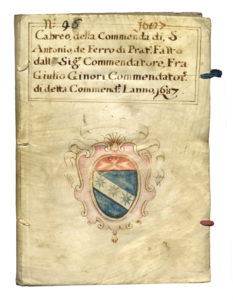 N: 95
Cabreo della Commenda di, S
Antonio de Ferro di Prat. Fatto
dall Sig: Commendatore, Fra
Giulio Ginori Commendator:
di detta Commend: Lanno, 1687